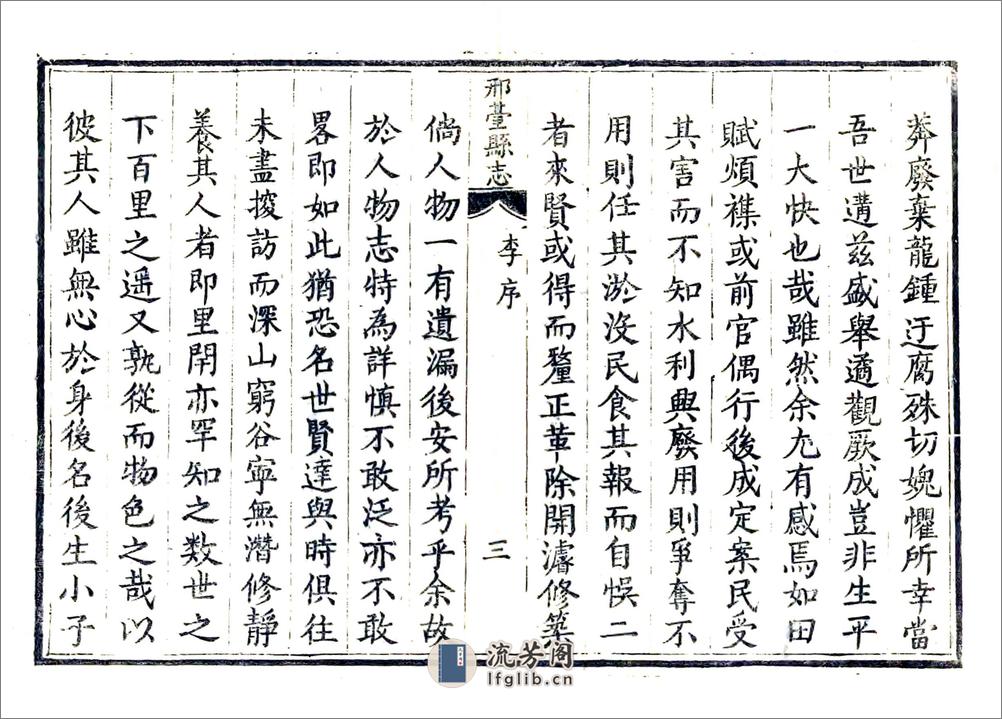 莾廢棄龍鍾迂腐殊切媿懼所幸當
吾世遘茲盛舉遹觀厥成豈非生平
一大快也哉雖然余尤有感焉如田
賦煩襍或前官偶行後成定案民受
其害而不知水利興廢用則爭奪不
用則任其淤沒民食其報而自悞二
者來賢或得而釐正革除開濬修築
邢臺縣志
李序
三
倘人物一有遺漏後安所考乎余故
於人物志特為詳慎不敢泛亦不敢
畧即如此猶恐名世賢達與時俱往
未盡搜訪而深山窮谷寧無潛修靜
養其人者即里閈亦罕知之数世之
下百里之遥又孰從而物色之哉以
彼其人雖無心於身後名後生小子
流芳阁
lfglib.cn